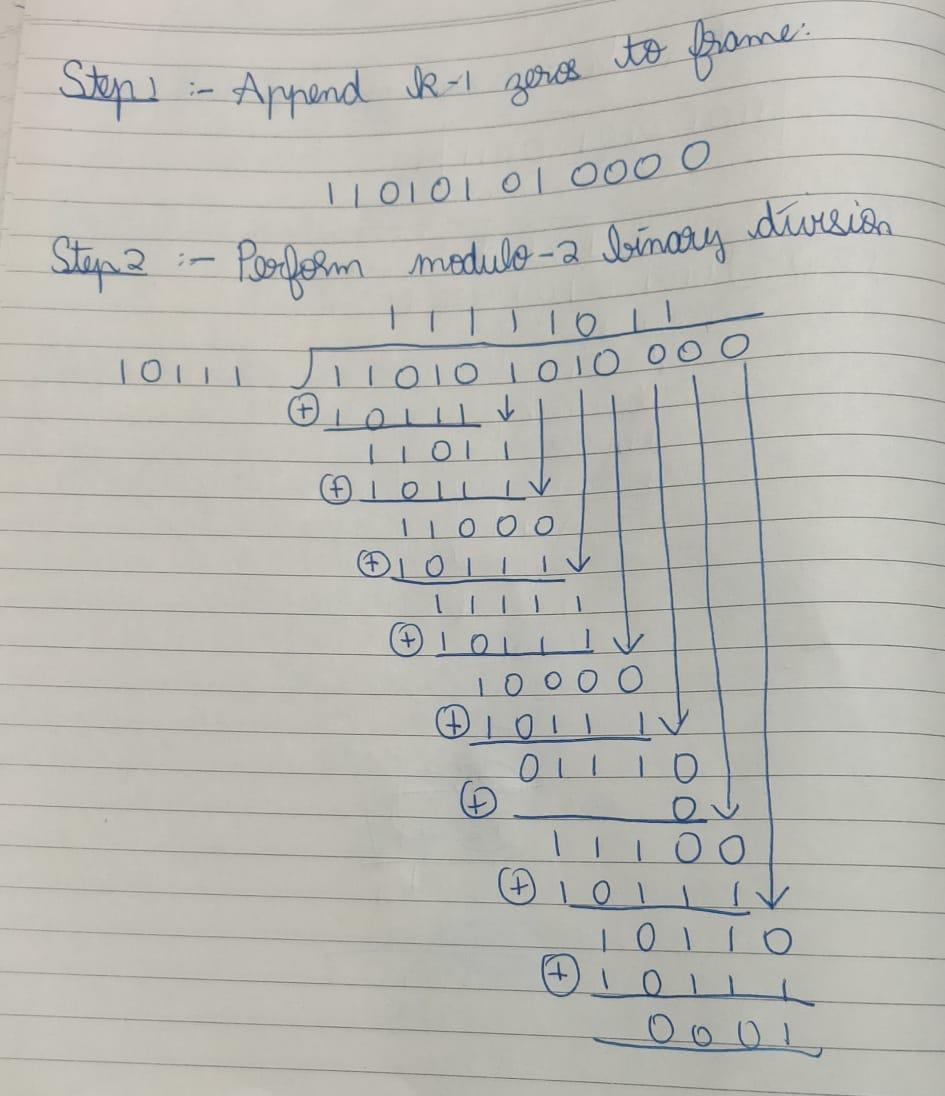 Step1 :- Append k-1 zeros to frame:
110101010000
Step2 :- Perform modulo-2 binary division
11111011
10111 110101010000
⊕ 10111
11011
⊕ 10111
11000
⊕ 10111
11111
⊕ 10111
10000
⊕ 10111
01110
⊕ 0
11100
⊕ 10111
10110
⊕ 10111
0001